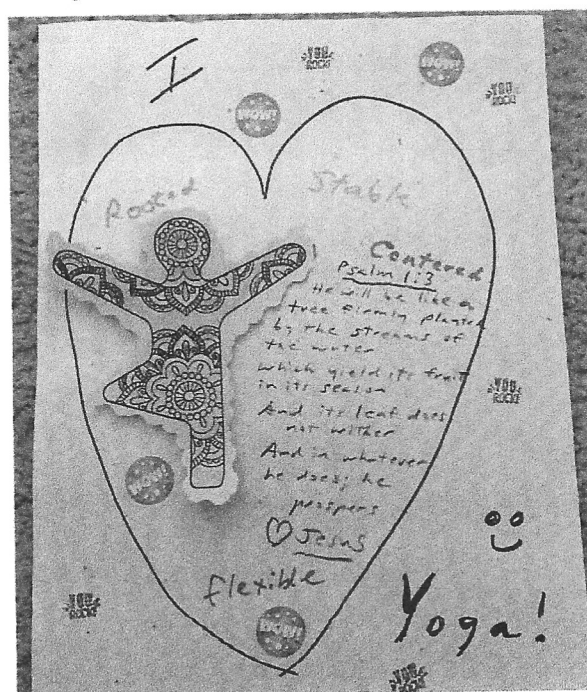 I
YOU
ROCK!
WOW!
WOW!
YOU
ROCK!
Rooted
Stable
Centered
Psalm 1:3
He will be like a
tree firmly planted
by the streams of
the water
which yield its fruit
in its season
And its leaf does
not wither
And in whatever
he does; he
prospers
Jesus
WOW!
YOU
ROCK!
flexible
YOU
ROCK!
WOW!
Yoga!
YOU
ROCK!